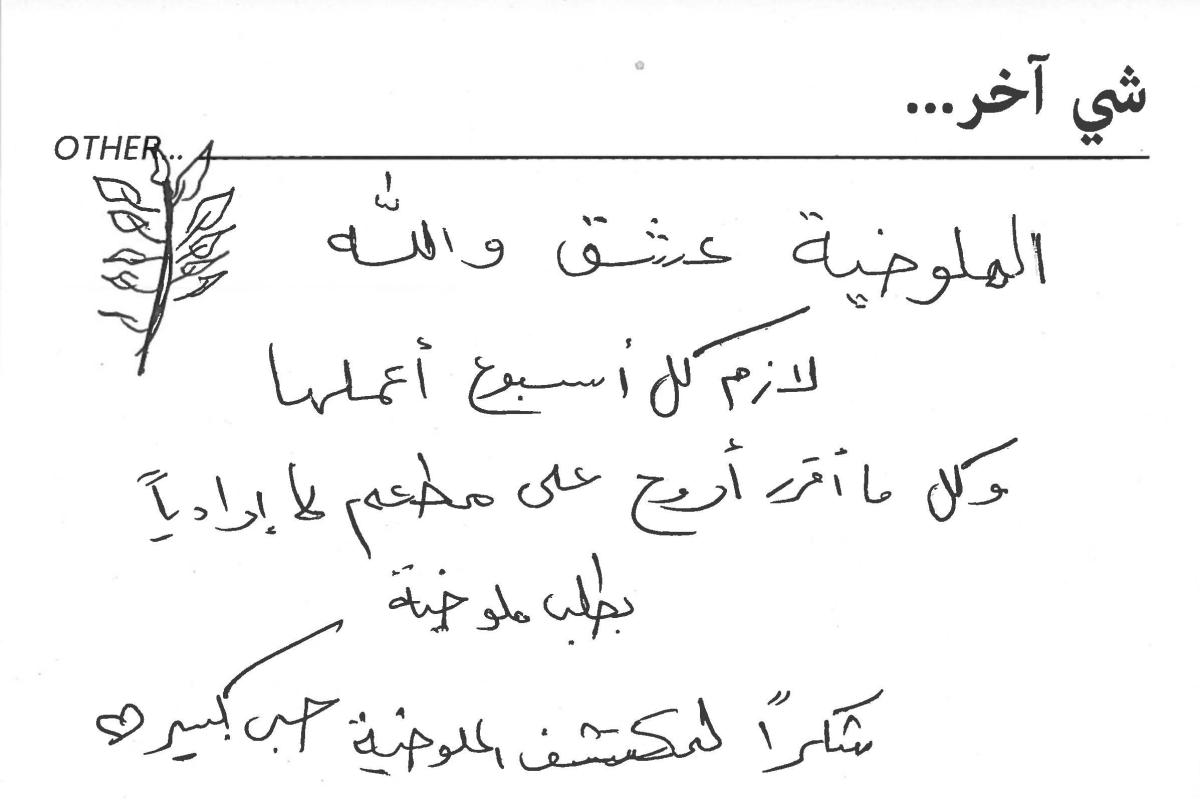 شي آخر...
OTHER...
الملوخية عشق والله
لازم كل أسبوع أعملها
وكل ما أقرر أروح على مطعم لا إرادياً
بطلب ملوخية
شكراً لمكتشف الملوخية حب كبير ♡